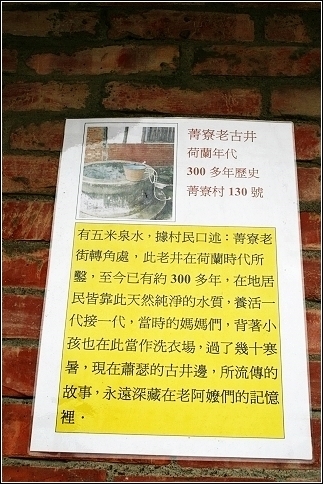 菁寮老古井
荷蘭年代
300 多年歷史
菁寮村 130 號
有五米泉水，據村民口述：菁寮老
街轉角處，此老井在荷蘭時代所
鑿，至今已有約 300 多年，在地居
民皆靠此天然純淨的水質，養活一
代接一代，當時的媽媽們，背著小
孩也在此當作洗衣場，過了幾十寒
暑，現在蕭瑟的古井邊，所流傳的
故事，永遠深藏在老阿嬤們的記憶
裡．